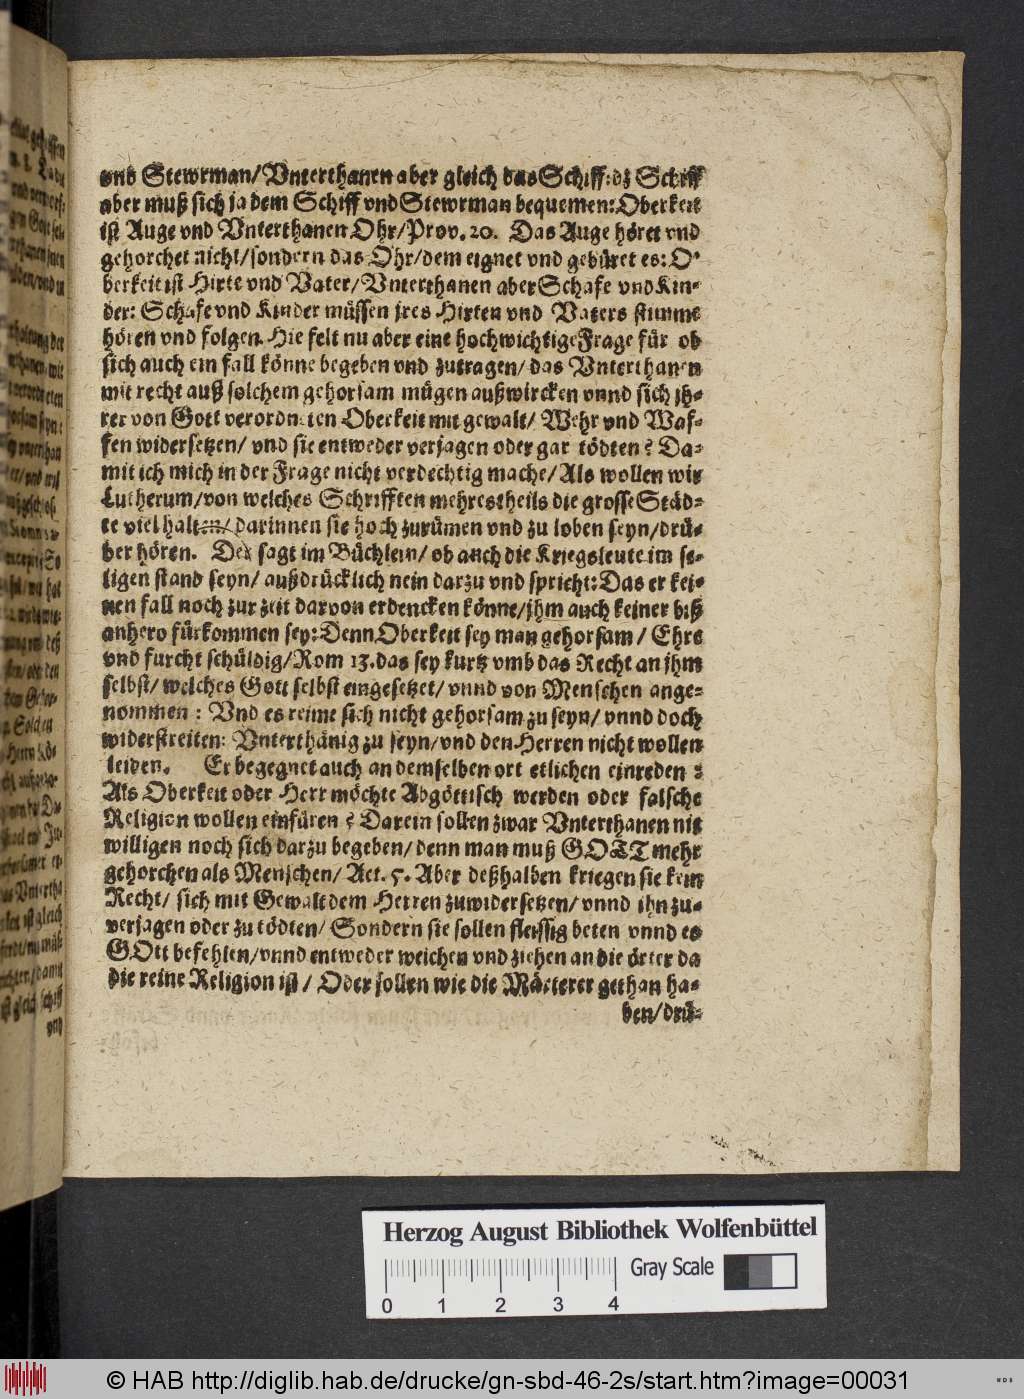 vnd Stewrman/Vnterthanen aber gleich das Schiff: dz Schiff
aber muß sich ja dem Schiff vnd Stewrman bequemen: Oberkeit
ist Auge vnd Vnterthanen Ohr/Prov. 20. Das Auge höret vnd
gehorchet nicht/sondern das Ohr/dem eignet vnd gebüret es: O-
berkeit ist Hirte vnd Vater/Vnterthanen aber Schafe vnd Kin-
der: Schafe vnd Kinder müssen jres Hirten vnd Vaters stimme
hören vnd folgen. Hie felt nu aber eine hochwichtige Frage für ob
sich auch ein fall könne begeben vnd zutragen/ das Vnterthanen
mit recht auß solchem gehorsam mügen außwircken vnnd sich jh-
rer von Gott verordneten Oberkeit mit gewalt/ Wehr vnd Waf-
fen widersetzen/ vnd sie entweder verjagen oder gar tödten? Da-
mit ich mich in der Frage nicht verdechtig mache/ Als wollen wir
Lutherum/von welches Schrifften mehrestheils die grosse Städ-
te viel halten/ darinnen sie hoch zurümen vnd zu loben seyn/drü-
ber hören. Der sagt im Büchlein/ ob auch die Kriegsleute im se-
ligen stand seyn/ außdrücklich nein darzu vnd spricht: Das er kei-
nen fall noch zur zeit darvon erdencken könne/jhm auch keiner biß
anhero fürkommen sey: Denn Oberkeit sey man gehorsam/ Ehre
vnd furcht schüldig/Rom 13. das sey kurtz vmb das Recht an jhm
selbst/ welches Gott selbst eingesetzet/ vnnd von Menschen ange-
nommen: Vnd es reime sich nicht gehorsam zu seyn/ vnnd doch
widerstreiten: Vnterthänig zu seyn/vnd den Herren nicht wollen
leiden. Er begegnet auch an demselben ort etlichen einreden:
Als Oberkeit oder Herr möchte Abgöttisch werden oder falsche
Religion wollen einfüren? Darein sollen zwar Vnterthanen nit
willigen noch sich darzu begeben/ denn man muß GOTT mehr
gehorchen als Menschen/ Act. 5. Aber deßhalben kriegen sie kein
Recht/ sich mit Gewalt dem Herren zuwidersetzen/ vnnd ihn zu-
verjagen oder zu tödten/ Sondern sie sollen fleissig beten vnnd es
GOtt befehlen/vnnd entweder weichen vnd ziehen an die örter da
die reine Religion ist/ Oder sollen wie die Märterer gethan ha-
ben/drü-
Herzog August Bibliothek Wolfenbüttel
Gray Scale
0 1 2 3 4
© HAB http://diglib.hab.de/drucke/gn-sbd-46-2s/start.htm?image=00031